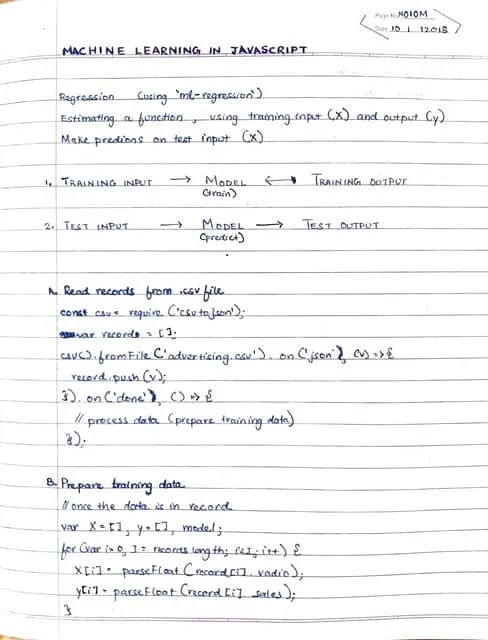 Page No. MOIOM
Date 10 1 12018
MACHINE LEARNING IN JAVASCRIPT
Regression (using 'ml-regression')
Estimating a function, using training input (X) and output (y)
Make predions on test input (X)
1. TRAINING INPUT → MODEL ↔ TRAINING OUTPUT
(train)
2. TEST INPUT → MODEL → TEST OUTPUT
(predict)
A. Read records from .csv file
const csv = require ('csvtojson');
var records = [];
csv().fromFile ('advertising.csv'). on ('json'), (v) => {
record.push (v);
}). on ('done'), () => {
// process data (prepare training data)
}).
B. Prepare training data
// once the data is in record
var X = [], y = [], model;
for (var i=0, I = records length; i<I; i++) {
X[i] = parseFloat (record [i]. vadio);
y[i] = parseFloat (record [i]. sales);
}